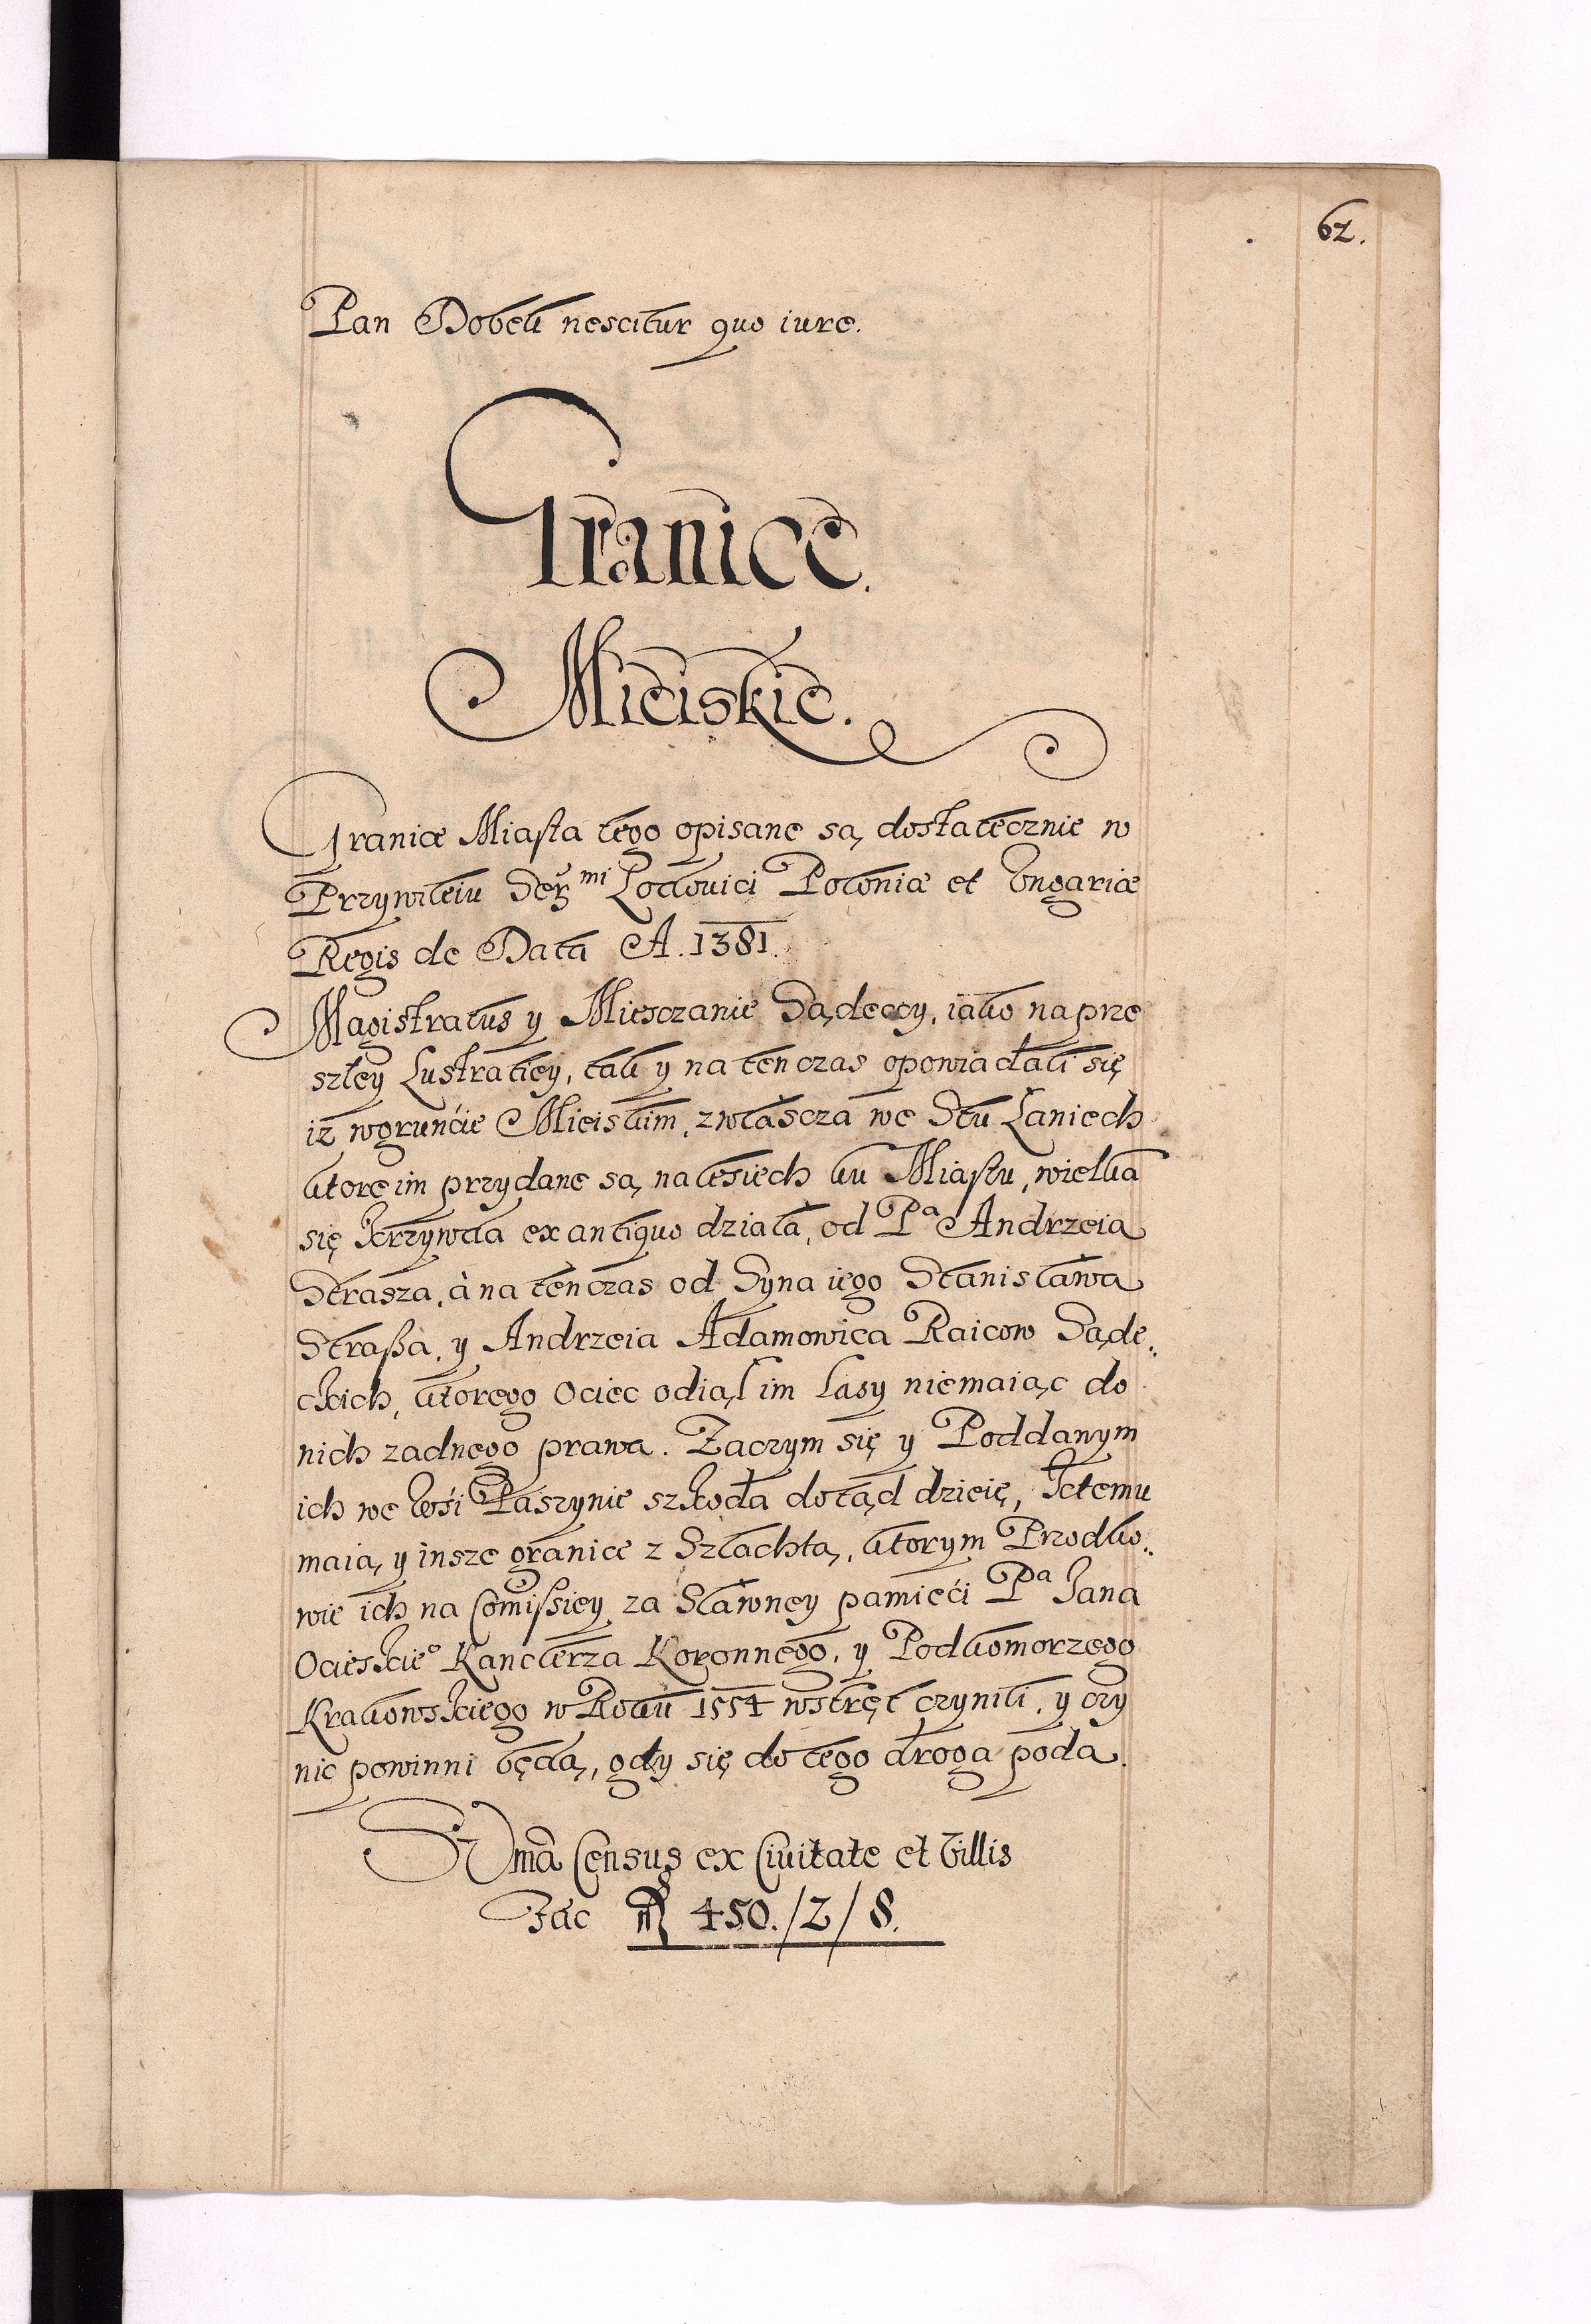 62.
Pan Dobek nescitur quo iure.
Granice
Mieiskie.
Granice Miasta tego opisane są dostatecznie w
Przywileiu Serᵐⁱ Lodovici Poloniæ et Vngariæ
Regis de Data A. 1381.
Magistratus y Miesczanie Sądeccy, iako na prze
szłey Lustratiey, tak y na ten czas opowiadali się
iż w gruńcie Mieiskim, zwłascza we Stu Łaniech
ktore im przydane są na lesiech ku Miastu, wielka
się krzywda ex antiquo działa, od Pᵃ Andrzeia
Strasza, à na ten czas od Syna iego Stanisława
Straßa, y Andrzeia Adamowica Raicow Sąde„
ckich, ktorego Ociec odiął im Lasy niemaiąc do
nich zadnego prawa. Zaczym się y Poddanym
ich we Wśi Paszynie szkoda dotąd dzieię, k temu
maią y insze granice z Szlachtą, ktorym Przodko„
wie ich na Comissiey za Sławney pamięći Pᵃ Jana
Ocieskieᵒ Kanclerza Koronnego, y Podkomorzego
Krakowskiego w Roku 1554 wstręt czynili, y czy
nic powinni będą, gdy się do tego droga poda.
SVma Census ex Civitate et Villis
Fac 450./2/8.